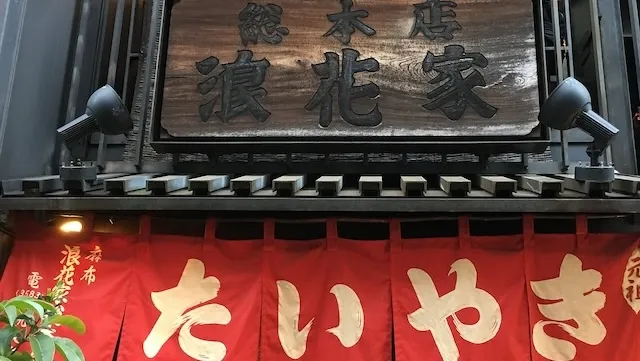 総本店
浪花家
麻布
浪花家
電
(3583
元
たいやき